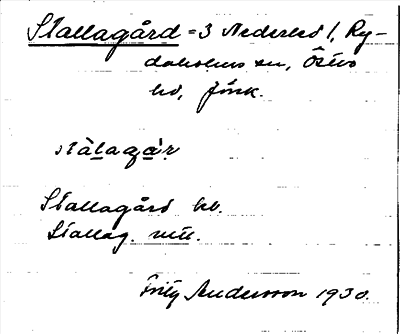 Stallagård = 3 Nederled 1, Ry-
daholms sn, Östbo
hd, Jönk.
stàlagár
Stallagård kb.
Stallag. mtl.
Fritz Andersson 1930.